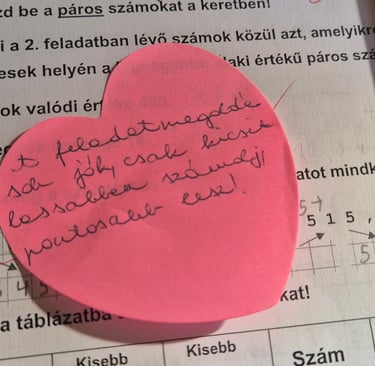 zd be a páros számokat a keretben!
i a 2. feladatban lévő számok közül azt, amelyikre
esek helyén a laki értékű páros szá
ok valódi ér
A feladatmegoldá
sok jók, csak kicsit
lassabban számolj,
pontosabb lesz!
atot mindk
5
5 1 5 ,
5
4 5
a táblázatba
kat!
Kisebb
Kisebb
Szám